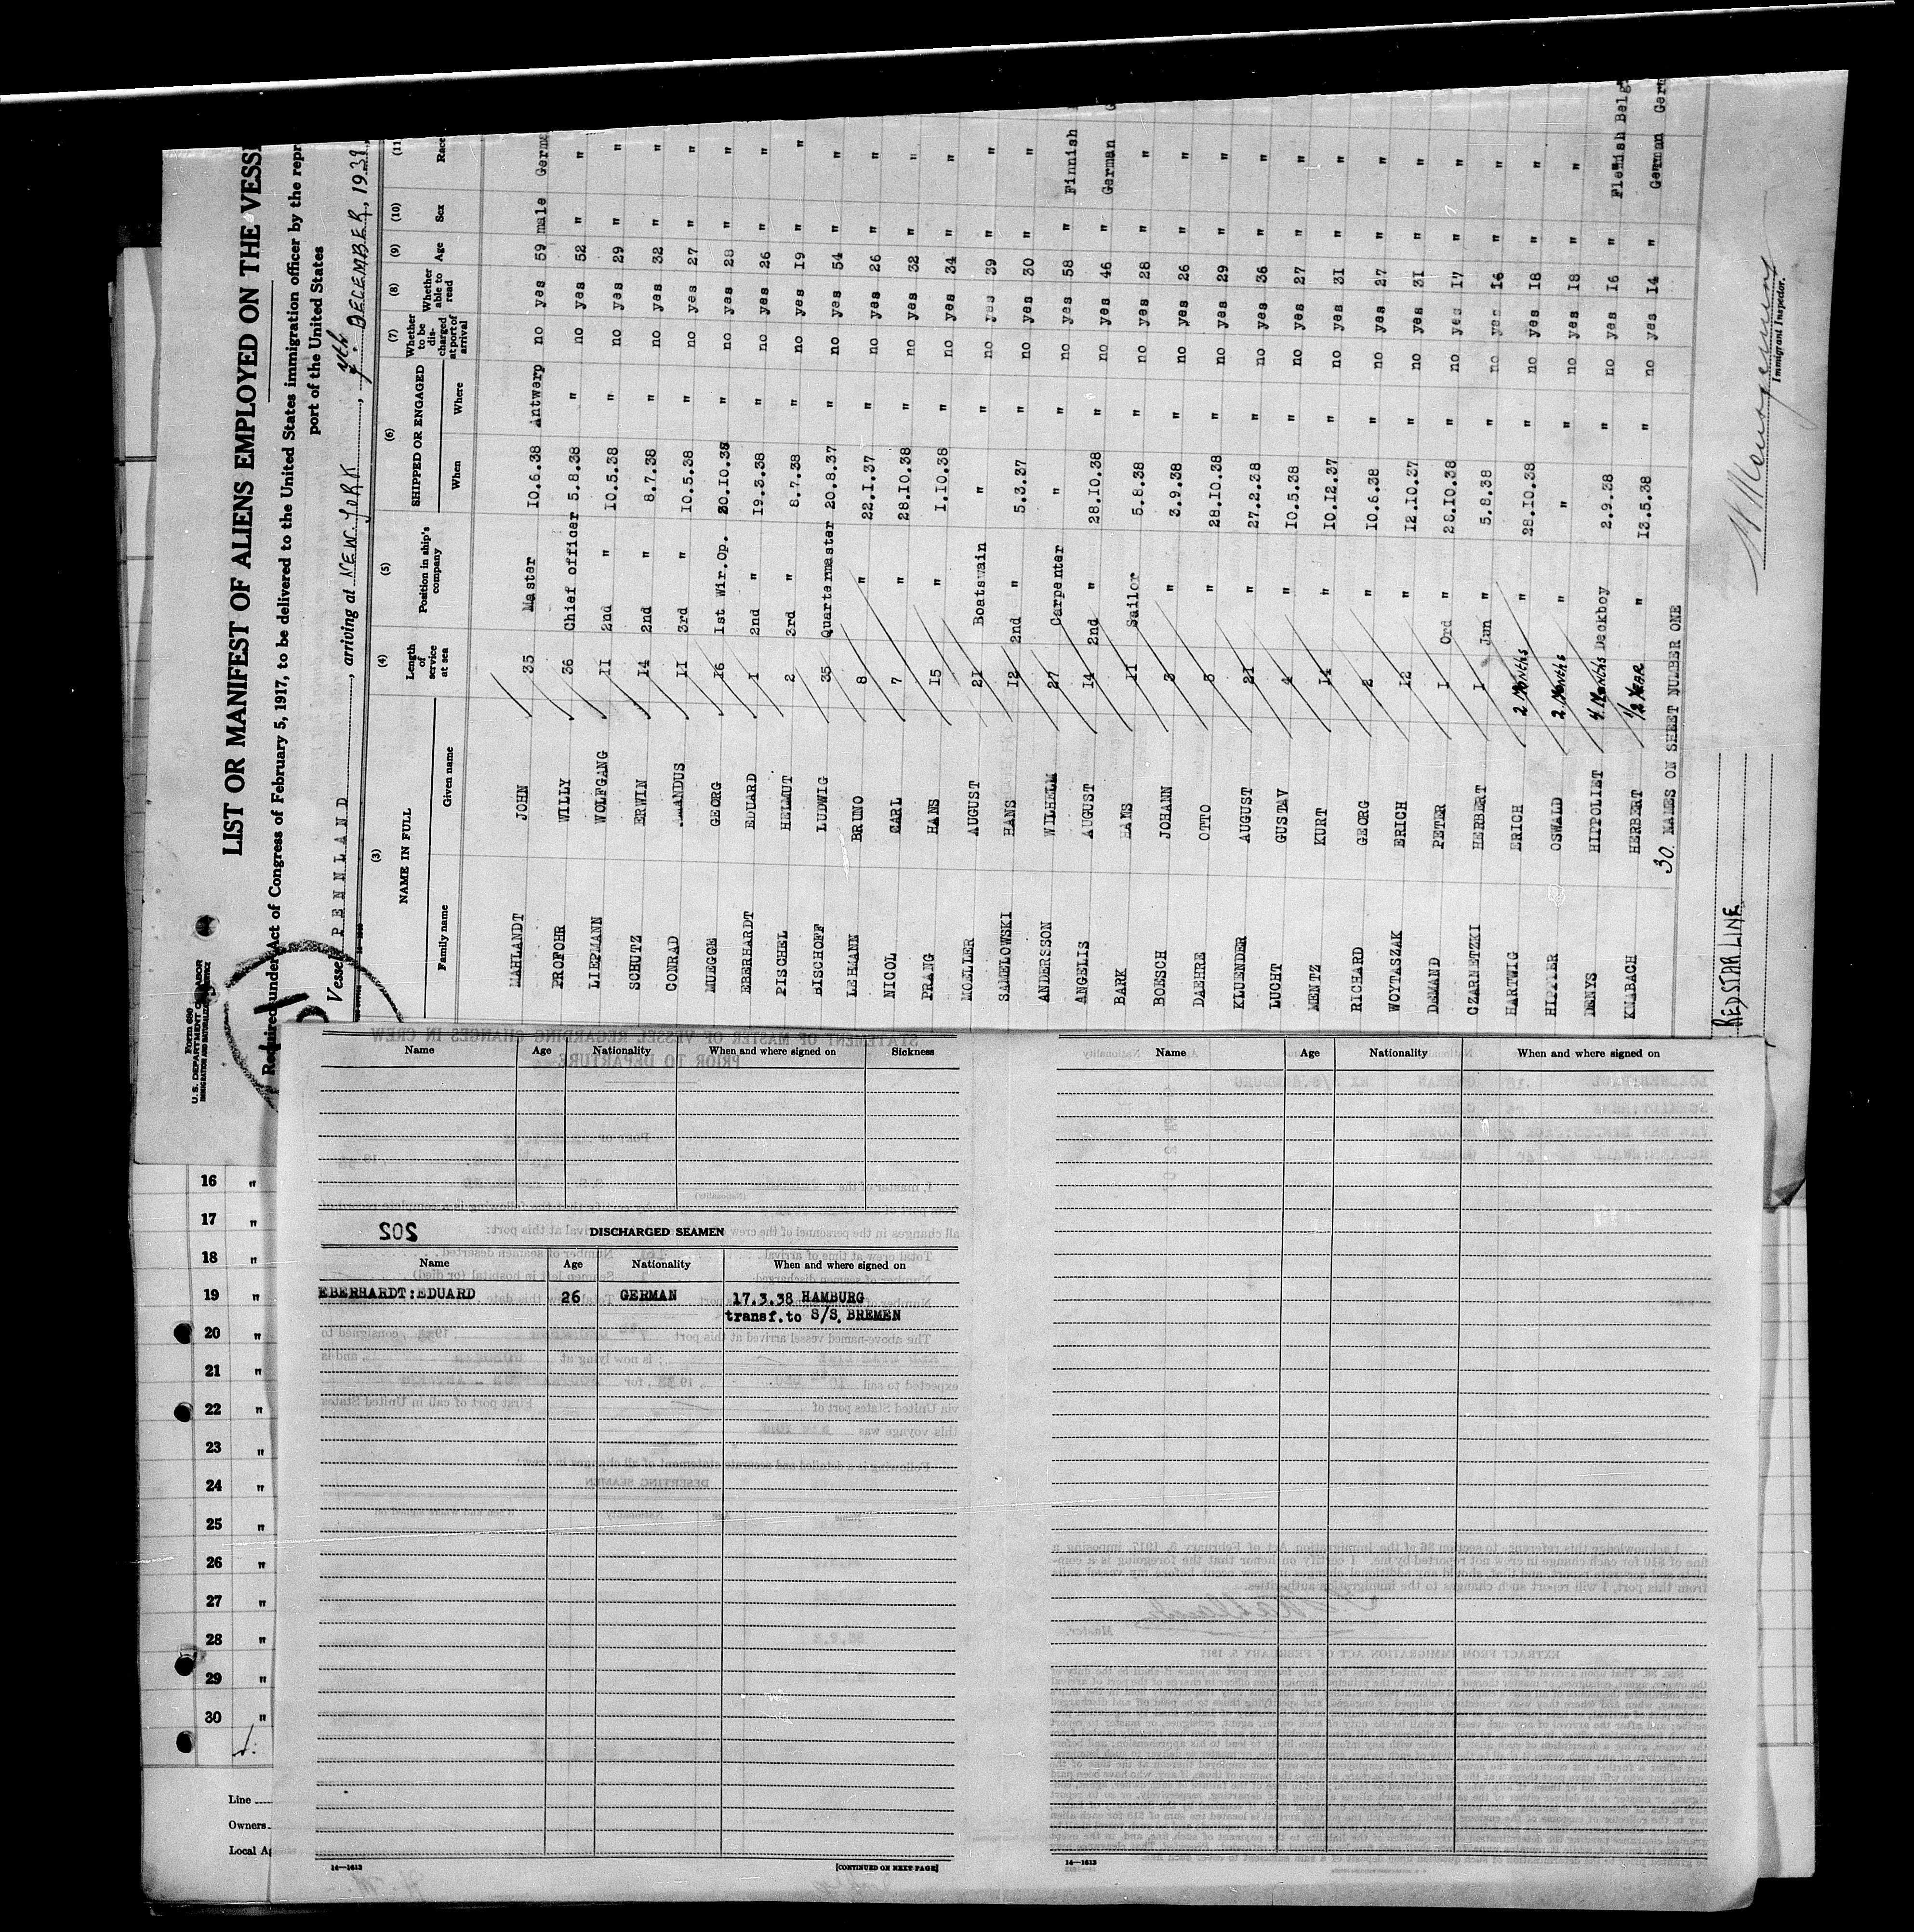 Form 680
U. S. DEPARTMENT OF LABOR
IMMIGRATION AND NATURALIZATION SERVICE
LIST OR MANIFEST OF ALIENS EMPLOYED ON THE VESSE
Required under Act of Congress of February 5, 1917, to be delivered to the United States immigration officer by the repr
port of the United States
Vessel PENNLAND, arriving at NEW YORK, 9th DECEMBER, 1939
(3) (4) (5) (6) (7) (8) (9) (10) (11
NAME IN FULL Length of service at sea Position in ship's company SHIPPED OR ENGAGED Whether to be discharged at port of arrival Whether able to read Age Sex Race
Family name Given name When Where
MAHLANDT JOHN 35 Master 10.6.38 Antwerp no yes 59 male Germa
PROFOHR WILLY 36 Chief officer 5.8.38 " no yes 52 " "
LIEPMANN WOLFGANG 11 2nd " 10.5.38 " no yes 29 " "
SCHUTZ ERWIN 14 2nd " 8.7.38 " no yes 32 " "
CONRAD AMANDUS 11 3rd " 10.5.38 " no yes 27 " "
MUEGGE GEORG 16 1st Wir.Op. 20.10.38 " no yes 28 " "
EBERHARDT EDUARD 1 2nd " 19.3.38 " no yes 26 " "
PISCHEL HELMUT 2 3rd " 8.7.38 " no yes 19 " "
BISCHOFF LUDWIG 35 Quartermaster 20.8.37 " no yes 54 " "
LEHMANN BRUNO 8 " 22.1.37 " no yes 26 " "
NICOL CARL 7 " 28.10.38 " no yes 32 " "
PRANG HANS 15 " 1.10.38 " no yes 34 " "
MOELLER AUGUST 21 Boatswain " " no yes 39 " "
SAMELOWSKI HANS 12 2nd " 5.3.37 " no yes 30 " "
ANDERSSON WILHELM 27 Carpenter " no yes 58 " Finnish
ANGELIS AUGUST 14 2nd " 28.10.38 " no yes 46 " German G
BARK HANS 11 Sailor 5.8.38 " no yes 28 " "
BOESCH JOHANN 3 " 3.9.38 " no yes 26 " "
DAEHRE OTTO 5 " 28.10.38 " no yes 29 " "
KLUENDER AUGUST 21 " 27.2.38 " no yes 36 " "
LUCHT GUSTAV 4 " 10.5.38 " no yes 27 " "
MENTZ KURT 14 " 10.12.37 " no yes 31 " "
RICHARD GEORG 2 " 10.6.38 " no yes 27 " "
WOYTASZAK ERICH 12 " 12.10.37 " no yes 31 " "
DEMAND PETER 1 Ord " 28.10.38 " no yes 17 " "
CZARNETZKI HERBERT 1 Jun " 5.8.38 " no yes 16 " "
HARTWIG ERICH 2 Months " 28.10.38 " no yes 18 " "
HIPPER OSWALD 2 Months " " " no yes 18 " "
DENYS HIPPOLIET 4 Months Deckboy 2.9.38 " no yes 16 " Flemish Belg
KNABACH HERBERT 1/2 YEAR " 13.5.38 " no yes 14 " German Germ
30 NAMES ON SHEET NUMBER ONE
RED STAR LINE
Immigrant Inspector.
16 "
17 "
18 "
19 "
20 "
21 "
22 "
23 "
24 "
25 "
26 "
27 "
28 "
29 "
30 "
Line
Owners
Local Ag
Name Age Nationality When and where signed on Sickness
202
DISCHARGED SEAMEN
Name Age Nationality When and where signed on
EBERHARDT:EDUARD 26 GERMAN 17.3.38 HAMBURG
transf.to S/S. BREMEN
14—1613
[CONTINUED ON NEXT PAGE]
Name Age Nationality When and where signed on
14—1613